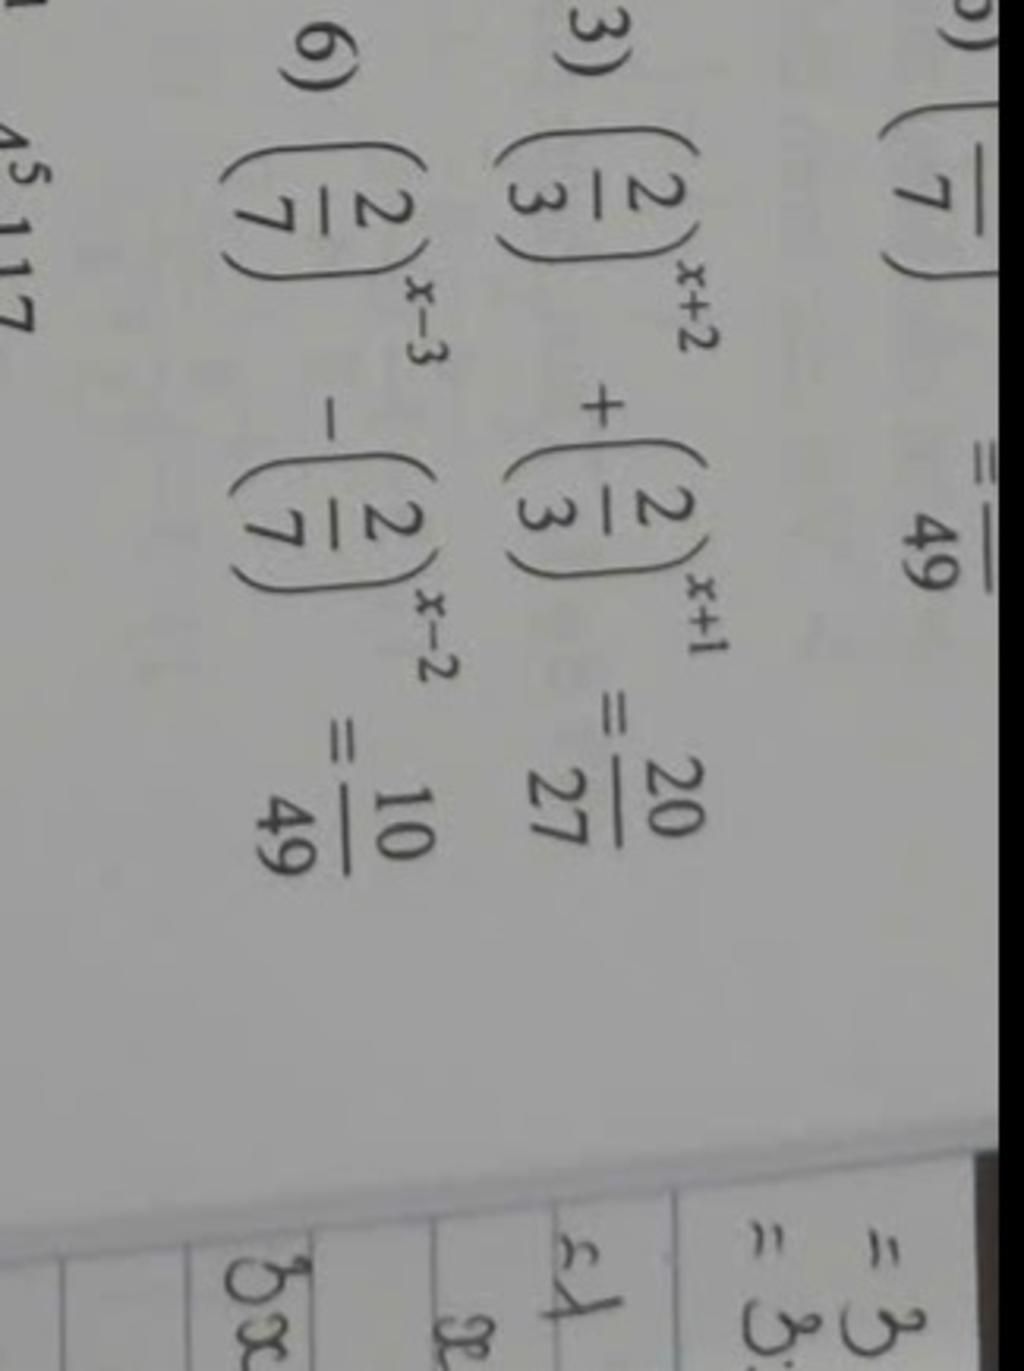 (—/7) = —/49
3) (2/3)^{x+2} + (2/3)^{x+1} = 20/27
6) (2/7)^{x-3} - (2/7)^{x-2} = 10/49
4^5 117
= 3
= 3
x
3x